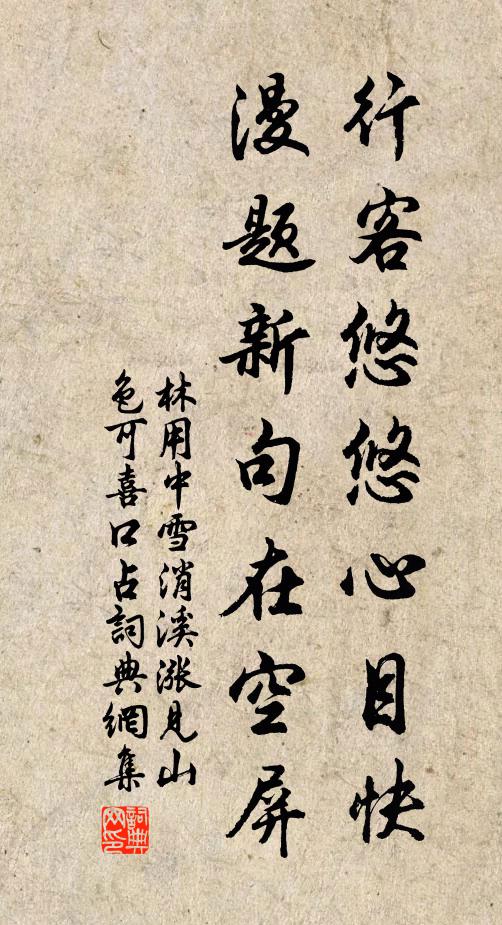 行客悠悠心目快
漫题新句在空屏
林用中雪消溪漲見山
色可喜口占詞典網集
詞典
网印